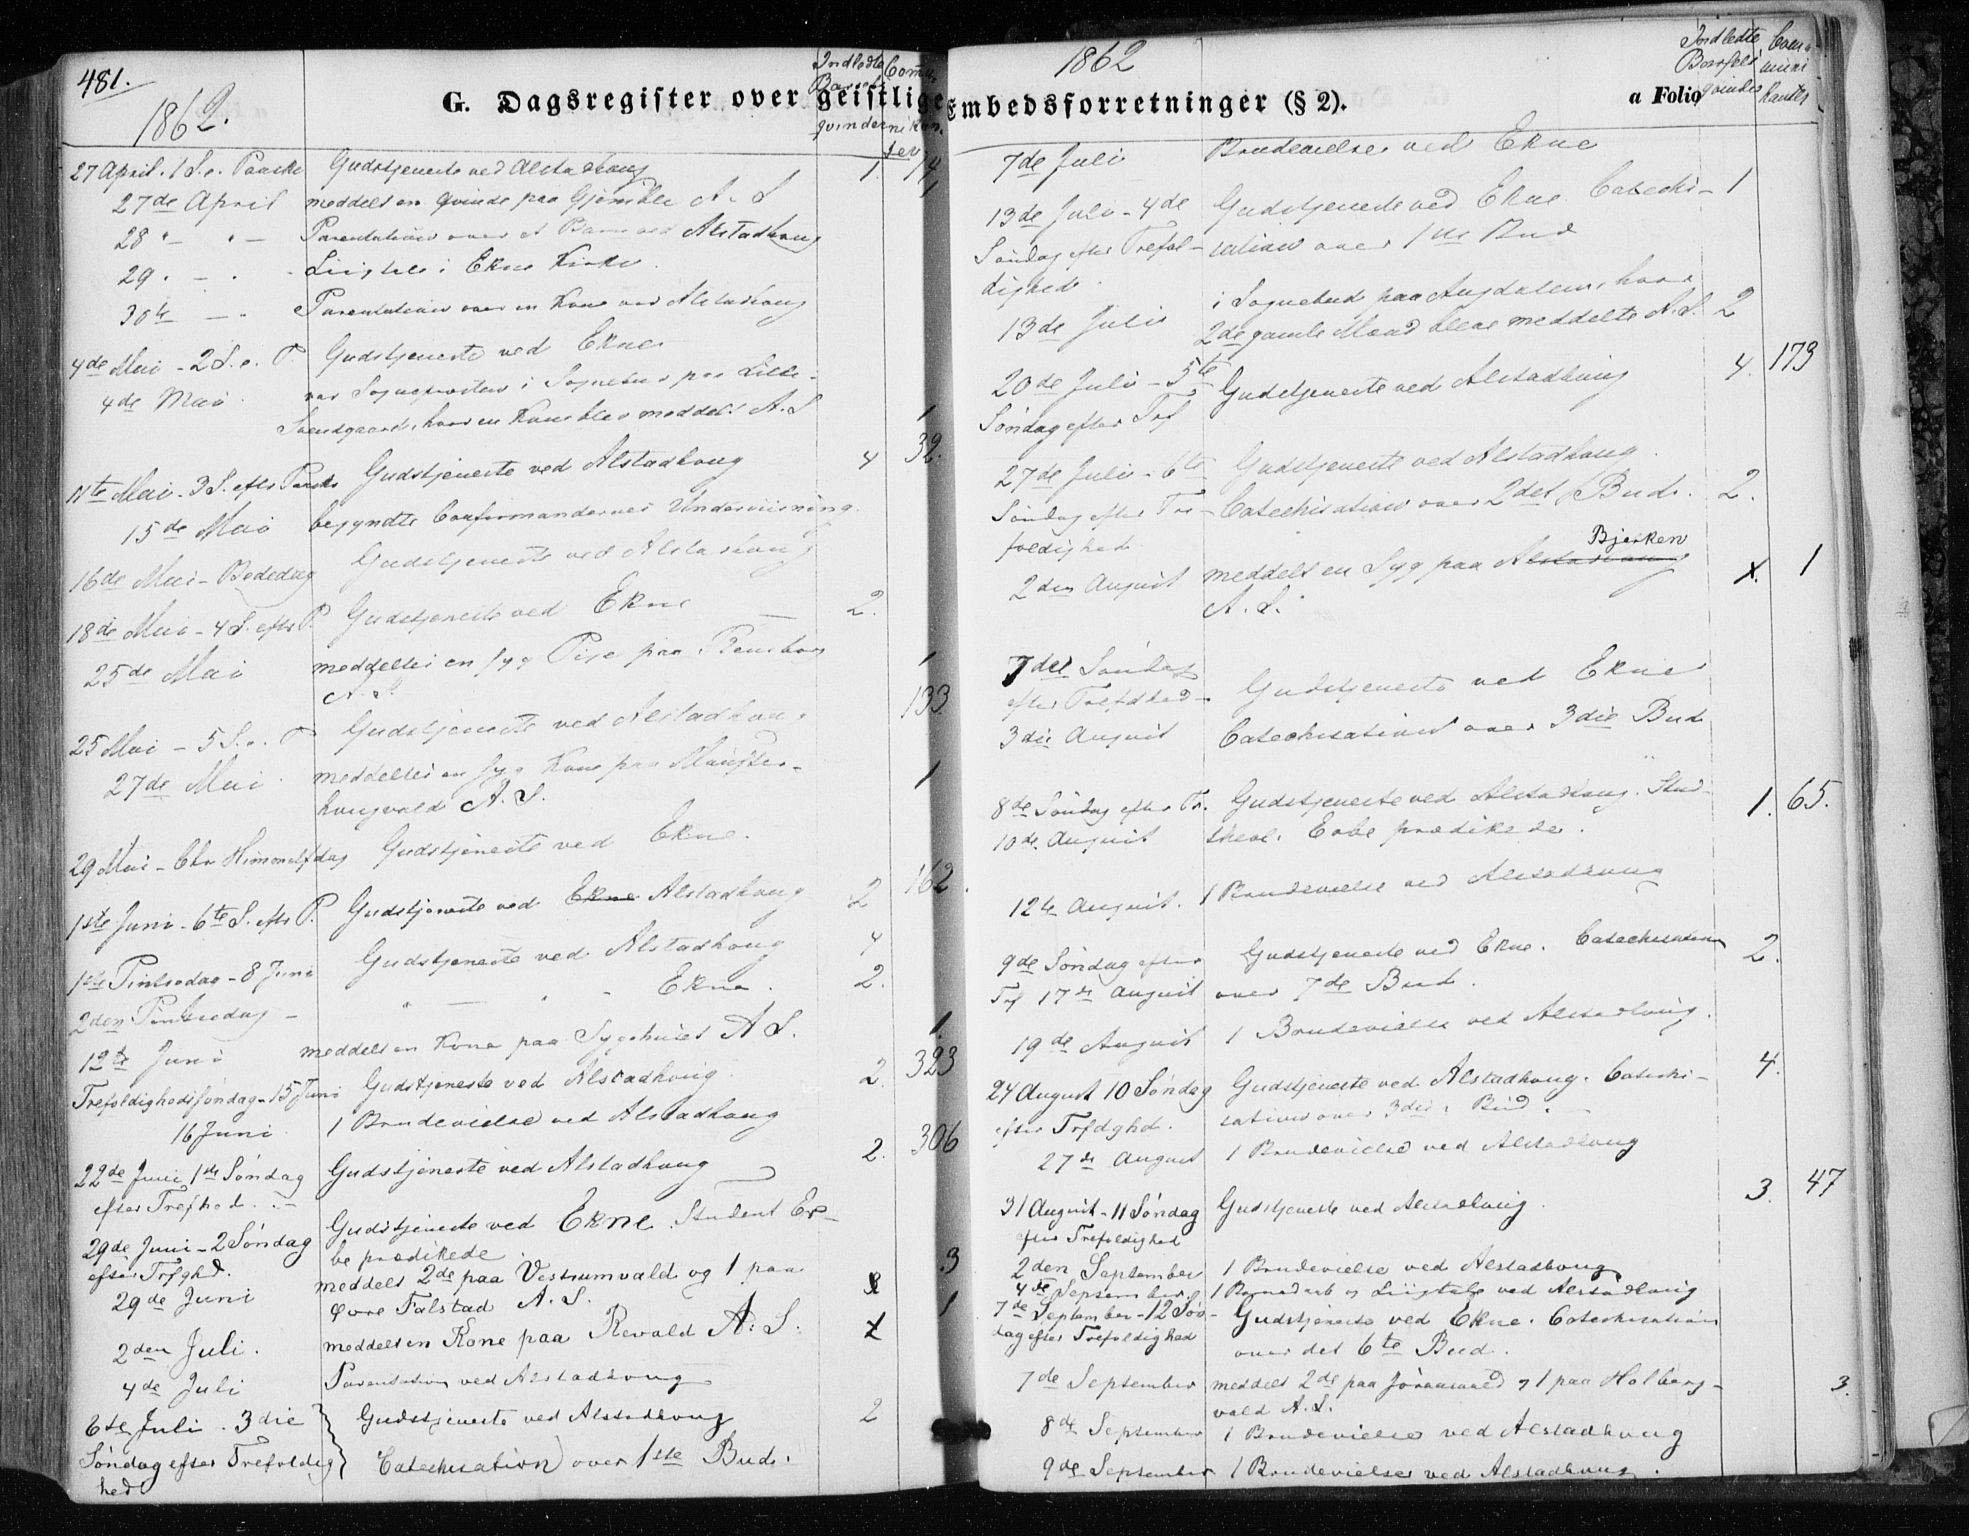 481.
1862.
G. Dagsregister over geistlige
Indledte Commu-
Barsel
qvinder nikan
ter
27 April. 1 S. e. Paaske Gudstjeneste ved Alstadhoug 1. 74
27de April meddelt en Qvinde paa Gjemble A. S 1
28 " - " - Parentation over et Barn ved Alstadhoug
29 " - " - Liigtale i Ekne Kirke.
30te - " Parentation over en Kone ved Alstadhoug
4de Mai - 2 S. e. P. Gudstjeneste ved Ekne
4de Mai var Sognepresten i Sognebud paa Lille-
Svendgaard, hvor en Kone blev meddelt A. S 1
11te Mai - 3 S. efter Paaske Gudstjeneste ved Alstadhoug 4 32.
15de Mai begyndte Confirmandernes Underviisning.
16de Mai - Bededag Gudstjeneste ved Alstadhoug
18de Mai - 4 S. efter P. Gudstjeneste ved Ekne 2.
25de Mai meddeltes en syg Pige paa 1
A. S.
25 Mai - 5 S. e. P Gudstjeneste ved Alstadhoug 133.
27de Mai meddeltes en syg Kone paa Munster- 1
hougvald A. S.
29 Mai - Chr Himmelfdag Gudstjeneste ved Ekne.
1ste Juni - 6te S. efter P. Gudstjeneste ved Ekne Alstadhoug 2 162.
1ste Pintsedag - 8 Juni Gudstjeneste ved Alstadhoug 4
2den Pintsedag - " - " - Ekne. 2.
12te Juni meddelt en Kone paa Sygehuset A S. 1.
Trefoldighedssøndag - 15 Juni Gudstjeneste ved Alstadhoug. 2. 323
16 Juni 1 Brudevielse ved Alstadhoug
22de Juni 1ste Søndag Gudstjeneste ved Alstadhoug 2. 306
efter Trefhed. -
29de Juni - 2 Søndag Gudstjeneste ved Ekne. Student Er-
efter Trfghd. be prædikede.
29de Juni meddelt 2de paa Vestrumvald og 1 paa 3
Øvre Falstad A. S.
2den Juli. meddelt en Kone paa Revald A. S. 1
4de Juli Parentation ved Alstadhoug
6te Juli. 3die Gudstjeneste ved Alstadhoug 2
Søndag efter Trefoldig Catechisation over 1ste Bud.
hed
1862
Embedsforretninger (§ 2).
a Folio
Indledte Com-
Barsels muni
qvinder kanter
7de Juli Brudevielse ved Ekne
13de Juli - 4de Gudstjeneste ved Ekne. Catechi- 1
Søndag efter Trefol- sation over 1ste Bud
dighed.
13de Juli i Sognebud paa Augdalen, hvor
2de gamle Mænd bleve meddelte A. S. 2
20de Juli - 5te Gudstjeneste ved Alstadhoug 4. 173
Søndag efter Trf
27de Juli - 6te Gudstjeneste ved Alstadhoug.
Søndag efter Tre- Catechisation over 2det Bud. 2.
foldighed
Bjerken
2den August meddelt en Syg paa Alstadhoug 1
A. S.
7de Søndag
efter Trefdhed - Gudstjeneste ved Ekne
3die August Catechisation over 3die Bud
8de Søndag efter Tr. Gudstjeneste ved Alstadhoug. Stud- 1. 65.
10de August Erbe prædikede.
12te August. 1 Brudevielse ved Alstadhoug
9de Søndag efter Gudstjeneste ved Ekne. Catechisation 2.
Trf 17de August over 7de Bud.
19de August 1 Brudevielse ved Alstadhoug.
24 August 10 Søndag Gudstjeneste ved Alstadhoug. Catechi- 4.
efter Trfdghd. sation over 3die Bud. -
27de August 1 Brudevielse ved Alstadhoug
31 August - 11 Søndag Gudstjeneste ved Alstadhoug. 3. 47
efter Trefoldighed
2den September 1 Brudevielse ved Alstadhoug
4de September 1 Barnedaab og Liigtale ved Alstadhoug
7de September - 12 Søn- Gudstjeneste ved Ekne. Catechisation
dag efter Trefoldighed over det 6te Bud.
7de September meddelt 2de paa Jøraasvald og 1 paa Holberg- 3.
vald A. S.
8de September 1 Brudevielse ved Alstadhoug
9de September 1 Brudevielse ved Alstadhoug.